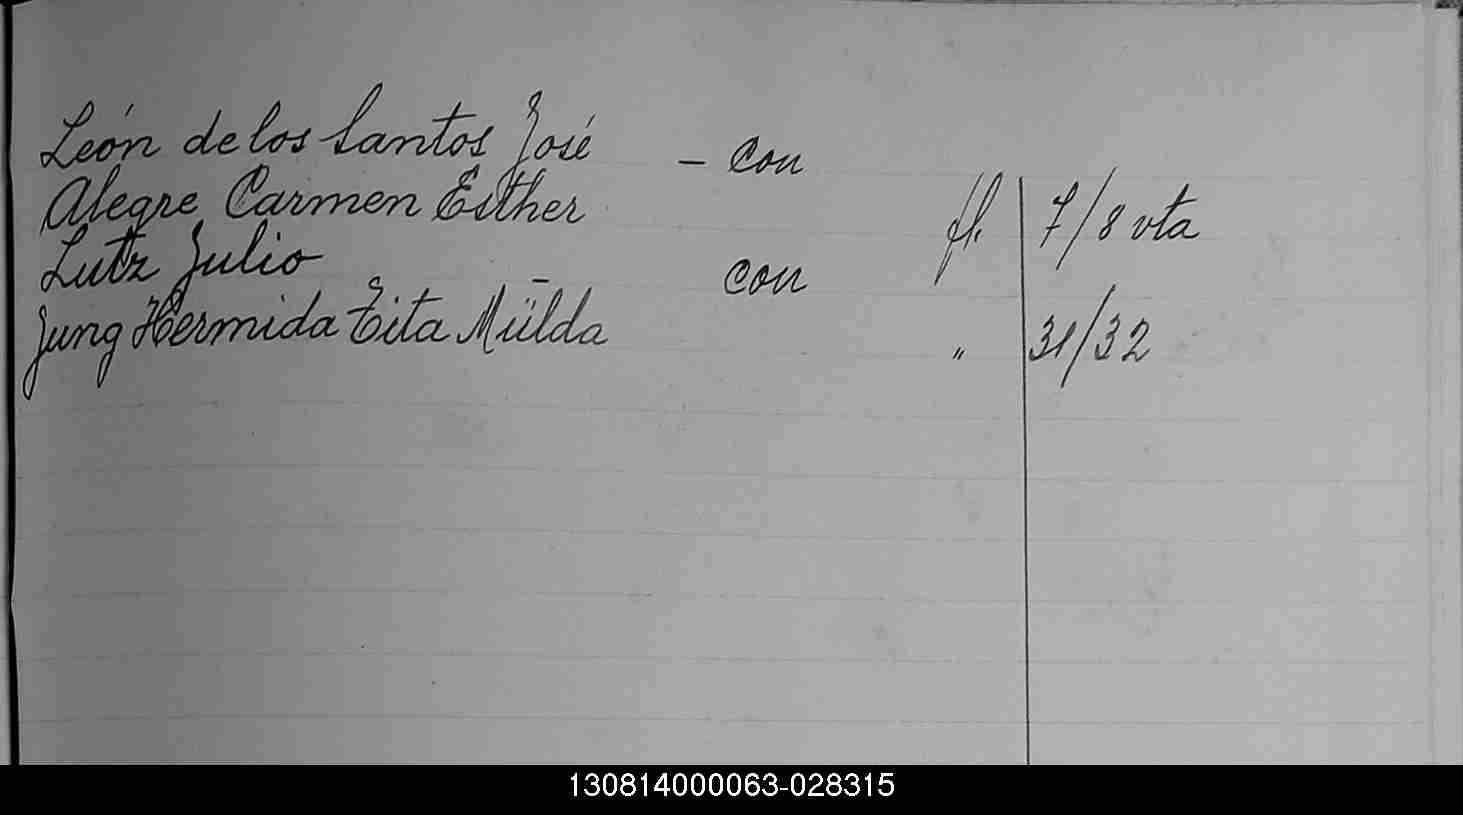 León de los Santos José - con
Alegre Carmen Esther fl. 7/8 vta
Lutz Julio - con
Jung Hermida Tita Mülda " 31/32
130814000063-028315